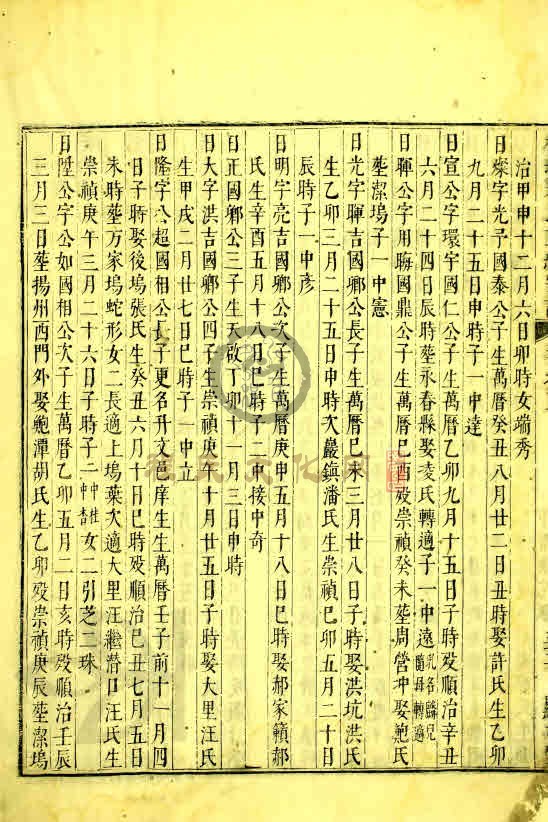 治甲申十二月六日卯時女瑞秀
日燦字光予國泰公子生萬曆癸丑八月廿二日丑時娶許氏生乙卯
九月二十五日申時子一中達
日宣公字環宇國仁公子生萬曆乙卯九月十五日子時歿順治辛丑
六月二十四日辰時塟永春縣娶凌氏轉適子一中遠乳名麟兒隨母轉適
日暉公字用晦國鼎公子生萬曆己酉歿崇禎癸未塟周營冲娶鮑氏
塟潔塢子一中憲
日光字暉吉國卿公長子生萬曆己未三月廿八日子時娶洪坑洪氏
生乙卯三月二十五日申時次巖鎮潘氏生崇禎己卯五月二十日
辰時子一中彥
日明字亮吉國卿公次子生萬曆庚申五月十八日巳時娶郝家籟郝
氏生辛酉五月十八日巳時子二中接中奇
日正國卿公三子生天啟丁卯十一月三日申時
日大字洪吉國卿公四子生崇禎庚午十月廿五日子時娶大里汪氏
生甲戌二月廿七日巳時子一中立
日隆字公超國相公長子更名升文邑庠生生萬曆壬子前十一月四
日子時娶後塢張氏生癸丑六月十日巳時歿順治己丑七月五日
未時塟方家塢蛇形女二長適上塢葉次適大里汪繼潛口汪氏生
崇禎庚午三月二十六日子時子二中桂中喆女二引芝二珠
日陞公字公如國相公次子生萬曆乙卯五月二日亥時歿順治壬辰
三月三日塟揚州西門外娶鮑潭胡氏生乙卯歿崇禎庚辰塟潔塢